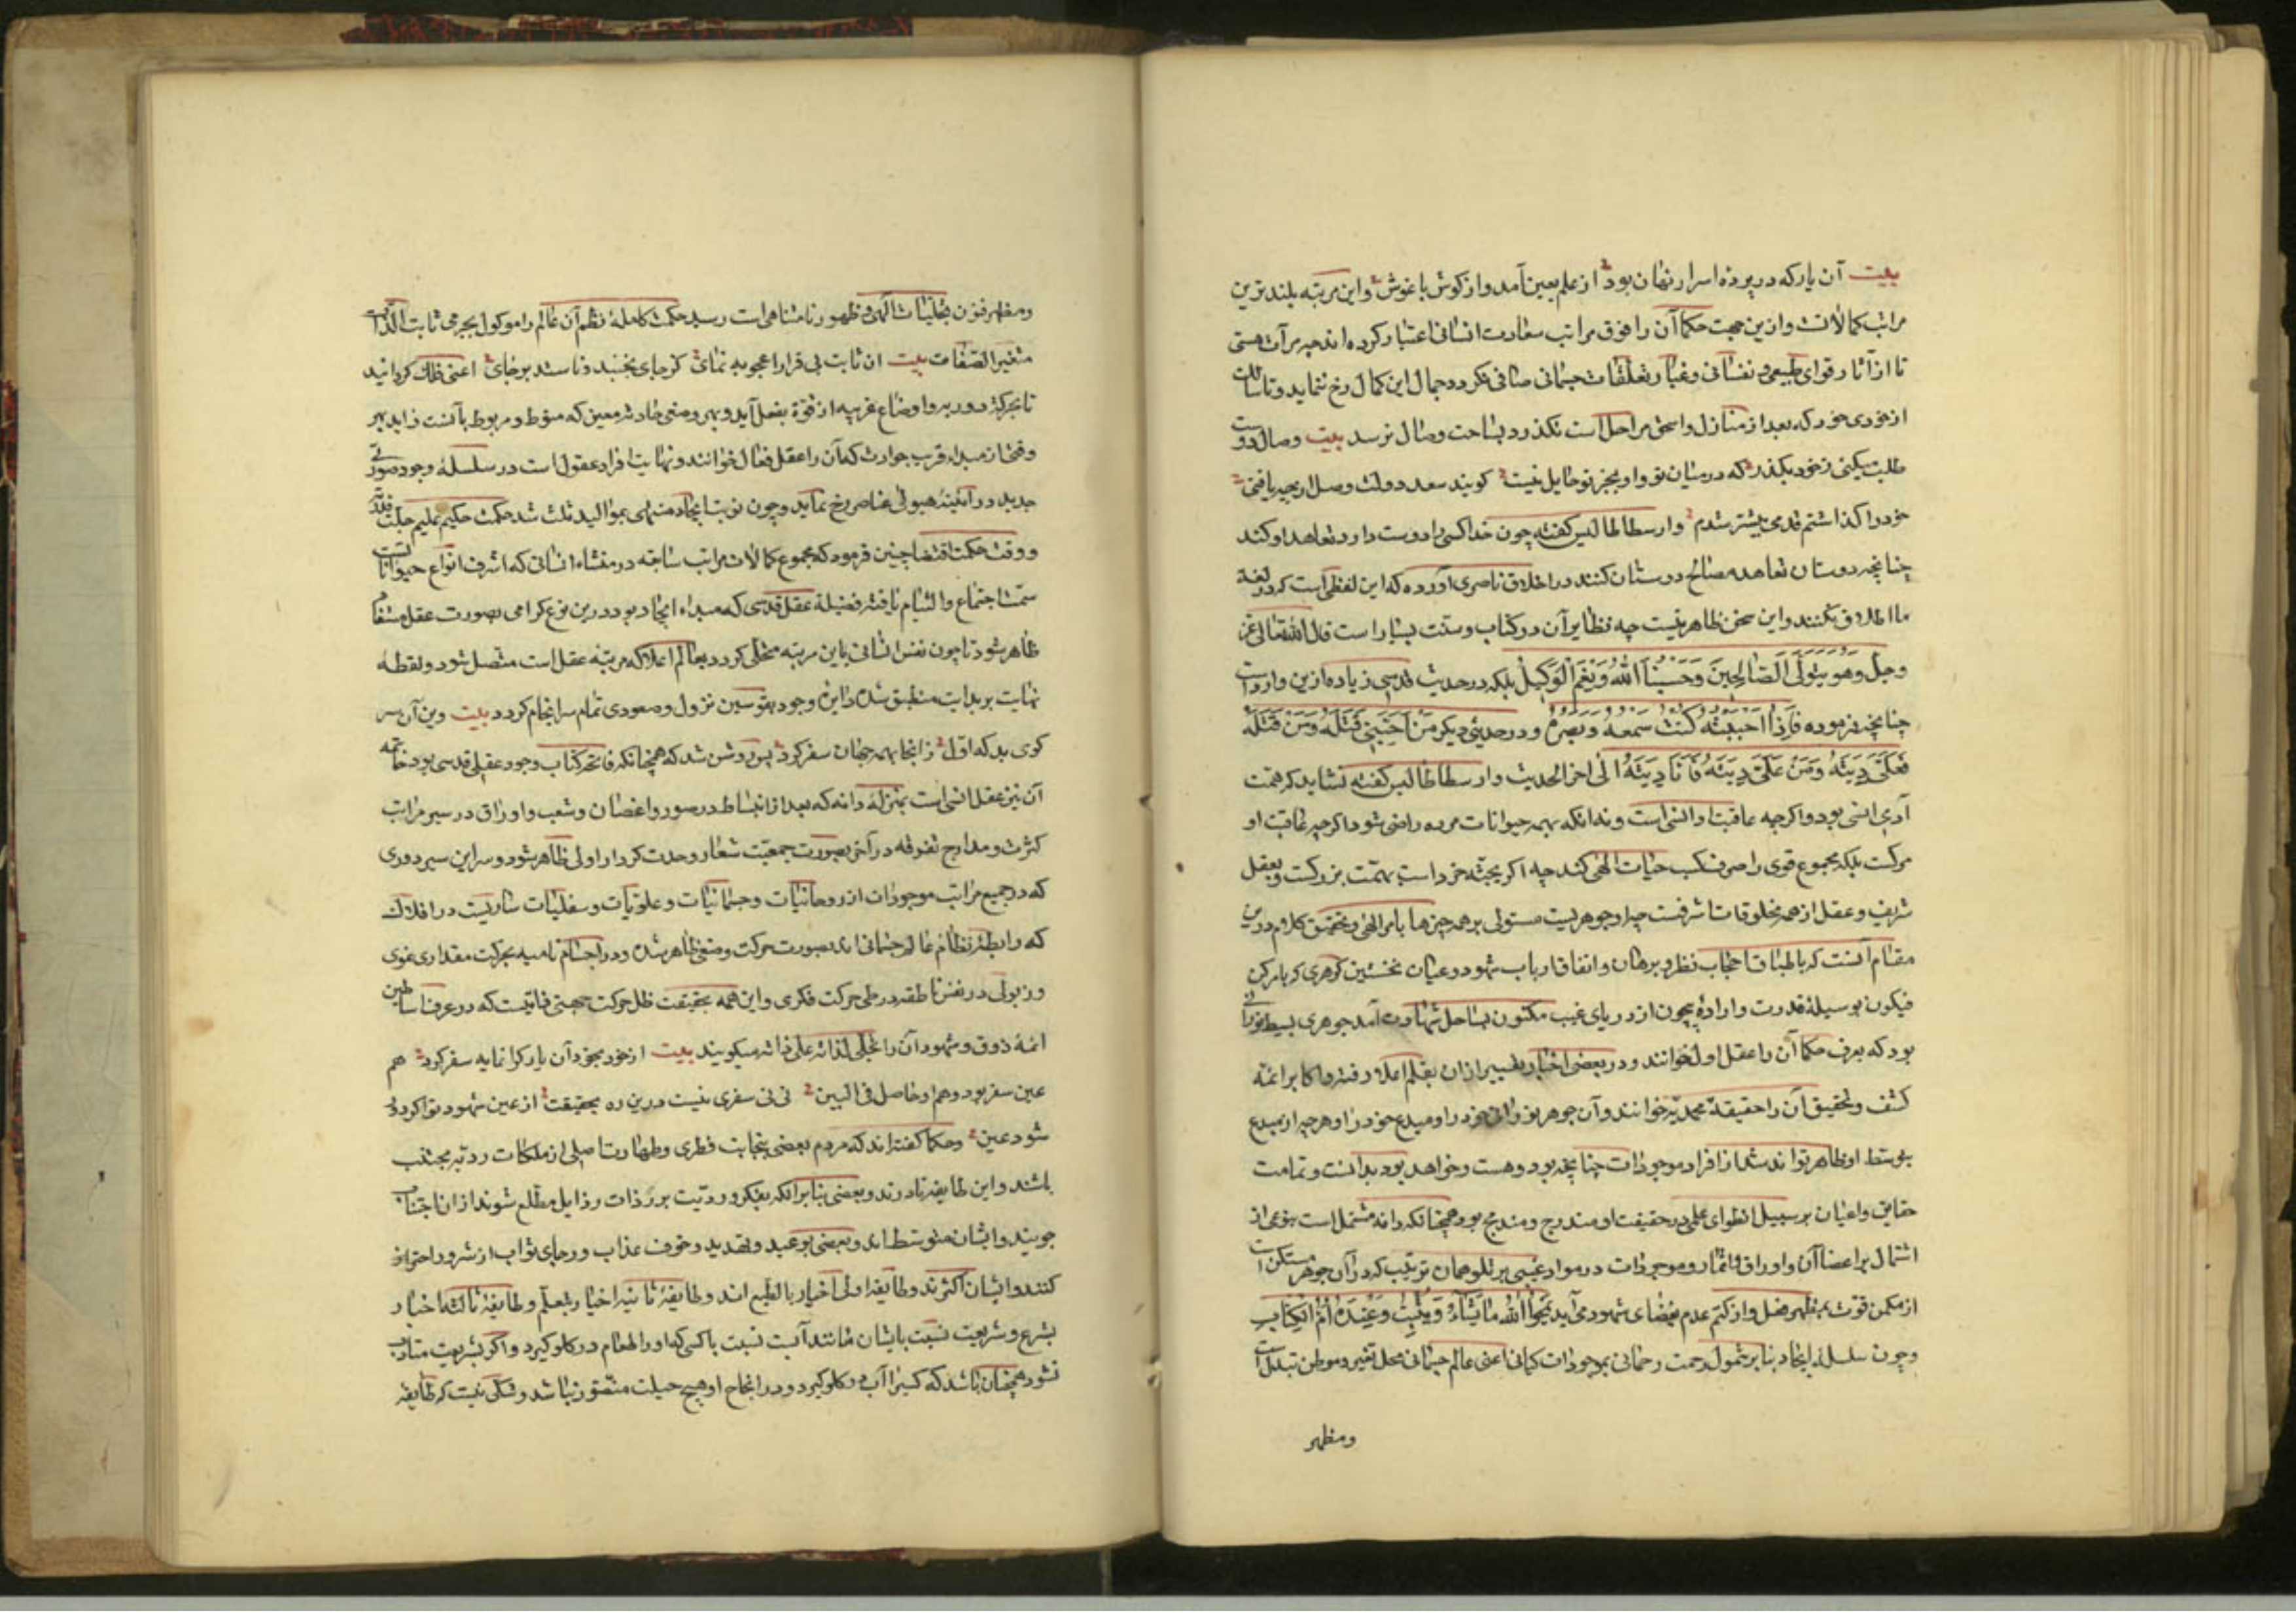 بیت آن یار که در پرده اسرار نهان بود از علم بعین آمد و از کوش باغوش و این مرتبه بلندترین
مراتب کمالانست و ازین جهت حکما آن را فوق مراتب سعادت انسانی اعتبار کرده اند چه مرآت هستی
تا از آثار قوای طبیعی و نفسانی و غبار تعلقات جسمانی صافی نکردد جمال این کمال رخ ننماید و تا سالک
از خودی خود که بعد از منازل و اسحق مراحل است نکذرد بساحت وصال نرسد بیت وصال دوست
طلب میکنی زخود بکذر که در میان تو و او بجز تو حایل نیست کویند سعد دولت وصل از چه یافتی
خود را کذاشتم قدمی پیشتر شدم و ارسطاطالیس کفته چون خدا کسی را دوست دارد تعاهد او کند
چنانچه دوستان تعاهد مصالح دوستان کنند در اخلاق ناصری آورده که این لفظی است که در لغة
ما اطلاق نکنند و این سخن ظاهر نیست چه نظایر آن در کتاب و سنت بسیار است قال الله تعالی عز
وجل وهو یتولی الصالحین وحسبنا الله ونعم الوکیل بلکه در حدیث قدسی زیاده ازین وارد است
چنانچه فرموده فاذا احببته کنت سمعه وبصره و در حدیثی دیکر من احبنی قتلته ومن قتلته
فعلی دیته ومن علی دیته فانا دیته الی اخر الحدیث و ارسطاطالیس کفته نشاید که همت
آدمی انسی بود و اکرچه عاقبت او انسی است و نه آنکه بهمه حیوانات مرده راضی شود اکرچه عاقبت او
مرکست بلکه مجموع قوی را صرف کسب حیات الهی کند چه اکر بجثه خرد است بهمت بزرکست و بعقل
شریف و عقل از همه مخلوقات اشرفست چه او جوهریست مستولی بر همه چیزها بامر الهی و تحقیق کلام درین
مقام آنست که باطباق اصحاب نظر و برهان و اتفاق ارباب شهود و عیان نخستین کوهری که بامر کن
فیکون بوسیلهٔ قدرت و ارادهٔ بیچون از دریای غیب مکنون بساحل شهادت آمد جوهری بسیط نورانی
بود که بعرف حکما آن را عقل اول خوانند و در بعضی اخبار تعبیر ازان بقلم اعلا رفته و اکابر ائمه
کشف و تحقیق آن را حقیقة محمدیه خوانند و آن جوهر نورانی خود را و مبدع خود را و هرچه از مبدع
بتوسط او ظاهر تواند شد از افراد موجودات چنانچه بود و هست و خواهد بود بدانست و تمامت
حقایق و اعیان بر سبیل انطوای علمی در حقیقت او مندرج و مندمج بود همچنانکه دانه مشتمل است بنوعی از
اشتمال بر اغصان و اوراق و اثمار و موجودات در مواد عینی بر تلو همان ترتیب که در آن جوهر مستکن است
از مکمن قوت بمظهر فعل و از کتم عدم بفضای شهود می آید یمحوا الله ما یشاء ویثبت وعنده ام الکتاب
و چون سلسلهٔ ایجاد بنابر شمول رحمت رحمانی بموجودات کیانی اعنی عالم جسمانی محل تغیر و موطن تبدل است
ومظهر
ومظهر فنون تجلیات الهی و ظهور نامتناهی است رسید حکمت کامله نظم آن عالم را موکول بجرمی ثابت الذات
متغیر الصفات بیت ان ثابت بی قرار اعجوبه نمای کز جای بجنبند و ناستد برجای اعنی فلک کردانید
تا بحرکة دوریه و اوضاع غریبه از قوة بفعل آید و بهر وضعی حادثه معین که منوط و مربوط بآنست زاید بهر
وقتی از مبداء قریب حوادث که آن را عقل فعال خوانند و نهایت افراد عقول است در سلسلهٔ وجود صورتی
جدید در آینهٔ هیولی عناصر رخ نماید و چون نوبت ایجاد منتهی بموالید ثلث شد حکمت حکیم علیم جلت قدرته
و وقت حکمت اقتضا چنین فرمود که مجموع کمالات مراتب سابقه در منشاء انسانی که اشرف انواع حیوانات است
سمت اجتماع و التیام یافته فضیلة عقل قدسی که مبداء ایجاد بود درین نوع کرامی بصورت عقل مستفاد
ظاهر شود تا چون نفس انسانی باین مرتبه متحلی کردد بعالم اعلا که مرتبه عقل است متصل شود و نقطه
نهایت بر بدایت منطبق شده دایرهٔ وجود بقوسین نزول و صعودی تمام سرانجام کردد بیت وین آن سر
کوی بد که اول زانجا بهمه جهان سفر کرد پس روشن شد که همچنانکه فاتحه کتاب وجود عقل قدسی بود خاتمه
آن نیز عقل انسی است بمنزلهٔ دانه که بعد از انبساط در صور و اغصان و شعب و اوراق در سیر مراتب
کثرت و مدارج تفرقه در آخر بصورت جمعیت شعار وحدت کردار اولی ظاهر شود و سر این سیر دوری
که در جمیع مراتب موجودات از روحانیات و جسمانیات و علویات و سفلیات ساریست در افلاک
که رابطهٔ نظام عالم جسمانی اند بصورت حرکت وضعی ظاهر شده و در اجسام نامیه بحرکت مقداری نموی
و ذبولی در نفس ناطقه در طی حرکت فکری و این همه بحقیقت ظل حرکت حبی ذاتیست که در عرف اساطین
ائمهٔ ذوق و شهود آن را تجلی لذاته علی ذاته میکویند بیت از خود بخود آن یار کرانمایه سفر کرد هم
عین سفر بود و هم او حاصل فی البین نی نی سفری نیست درین ره بحقیقت از عین شهود تو اکر دور
شود عین و حکما کفته اند که مردم بعضی بنجابت فطری و طهارت اصلی از ملکات ردیه مجتنب
باشند و این طایفه نادرند و بعضی بنابر آنکه بفکر و رویت بر رذات رذایل مطلع شوند از ان اجتناب
جویند و ایشان متوسط اند و بعضی بوعید و تهدید و خوف عذاب و رجای ثواب از شرور احتراز
کنند و ایشان اکثرند و طایفه اولی اخیار بالطبع اند و طایفهٔ ثانیه اخیار بتعلم و طایفهٔ ثالثه اخیار
بشرع و شریعت نسبت بایشان مانند آبست نسبت با کسی که او را طعام در کلو کیرد و اکر بشریعت متادب
نشود همچنان باشد که کسی را آب در کلو کیرد و در انجاح او هیچ حیلت متصور نباشد و شکی نیست که طایفه